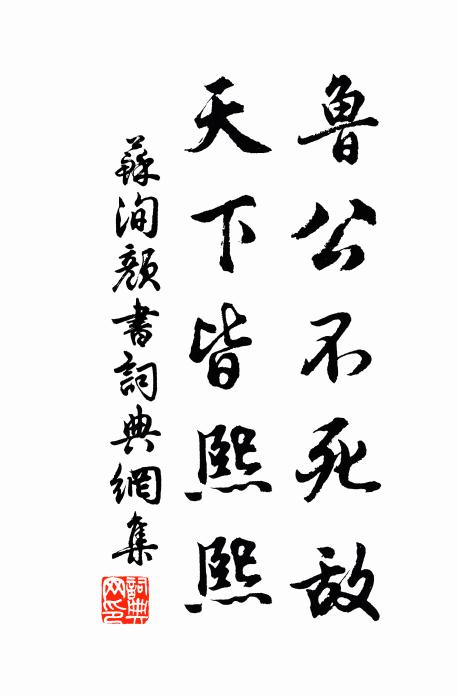 魯公不死敌
天下皆熙熙
蘇洵顏書詞典網集
詞典网印